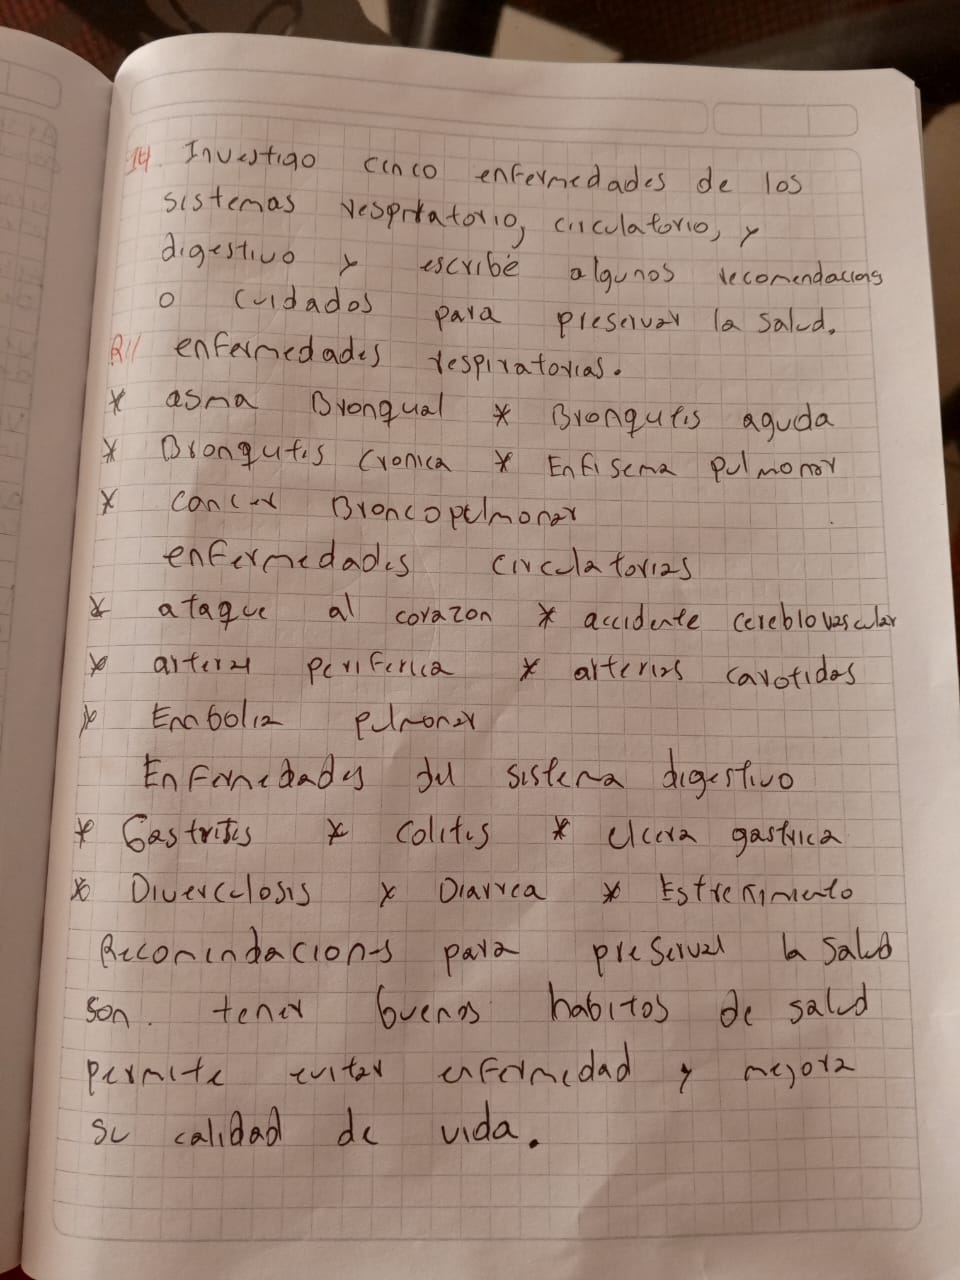 14. Investigo cinco enfermedades de los
sistemas respiratorio, circulatorio, y
digestivo y escribe algunos recomendacions
o cuidados para preservar la salud.
R// enfermedades respiratorias.
* asma Bronqual * Bronqutis aguda
* Bronqutis Cronica * Enfisema pulmonar
* cancer Broncopulmonar
enfermedades circulatorias
* ataque al corazon * accidente cereblovascular
* arterias periferica * arterias carotidas
* Embolia pulmonar
Enfermedades del sistema digestivo
* Gastritis * colitis * Ulcera gastrica
* Diverculosis * Diarrea * Estreñimiento
Recomendaciones para preserval la salud
son. tener buenos habitos de salud
permite evitar enfermedad y mejora
su calidad de vida.